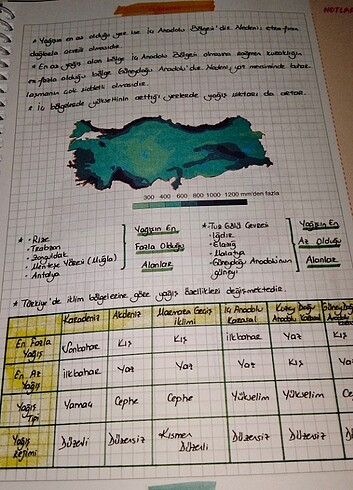 * Yağışın en az olduğu yer ise İç Anadolu Bölgesi'dir. Nedeni, etrafının
dağlarla çevrili olmasıdır.
* En az yağış alan bölge İç Anadolu Bölgesi olmasına rağmen kuraklığın
en fazla olduğu bölge Güneydoğu Anadolu'dur. Nedeni, yaz mevsiminde buhar
laşmanın çok şiddetli olmasıdır.
* İç bölgelerde yükseltinin arttığı yerlerde yağış miktarı da artar.
300 400 600 800 1000 1200 mm'den fazla
* · Rize
· Trabzon
· Zonguldak
· Menteşe Yöresi (Muğla)
· Antalya
Yağışın En
Fazla Olduğu
Alanlar
* · Tuz Gölü Çevresi
· Iğdır
· Elazığ
· Malatya
· Güneydoğu Anadolu'nun
güneyi
Yağışın En
Az Olduğu
Alanlar
* Türkiye'de iklim bölgelerine göre yağış özellikleri değişmektedir.
Karadeniz Akdeniz Marmara Geçiş İklimi İç Anadolu Karasal Kuzey Doğu Anadolu Karasal
En Fazla Yağış Sonbahar Kış Kış ilkbahar Yaz Kış
En Az Yağış ilkbahar Yaz Yaz Yaz Kış
Yağış Tipi Yamaç Cephe Cephe Yükselim Yükselim
Yağış Rejimi Düzenli Düzensiz Kısmen Düzenli Düzensiz Düzensiz